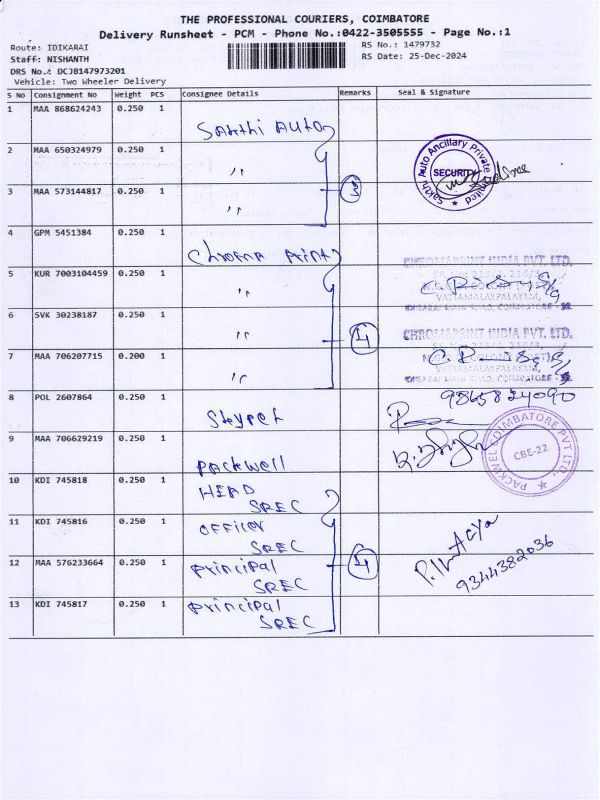 THE PROFESSIONAL COURIERS, COIMBATORE
Delivery Runsheet - PCM - Phone No.:0422-3505555 - Page No.:1
Route: IDIKARAI
RS No.: 1479732
Staff: NISHANTH
RS Date: 25-Dec-2024
DRS No.: DCJB147973201
Vehicle: Two Wheeler Delivery
S No Consignment No Weight PCS Consignee Details Remarks Seal & Signature
1 MAA 868624243 0.250 1
Sakthi Auto
2 MAA 650324979 0.250 1 ,,
Sakthi Auto Ancillary Private Limited
SECURITY
3 MAA 573144817 0.250 1 ,,
4 GPM 5451384 0.250 1
Chroma Print
CHROMAPRINT INDIA PVT. LTD.
5 KUR 7003104459 0.250 1 ,,
VATTAMALAYPALAYAM,
6 SVK 30238187 0.250 1 ,,
4
CHROMAPRINT INDIA PVT. LTD.
7 MAA 706207715 0.200 1 ,,
VATTAMALAYPALAYAM,
8 POL 2607864 0.250 1
9865824090
Skypet
9 MAA 706629219 0.250 1
Packwell
PACKWEL COIMBATORE PVT LTD.
CBE-22
10 KDI 745818 0.250 1
HEAD
SREC
11 KDI 745816 0.250 1
Officer
SREC
12 MAA 576233664 0.250 1
Principal
SREC
4
9344382036
13 KDI 745817 0.250 1
Principal
SREC